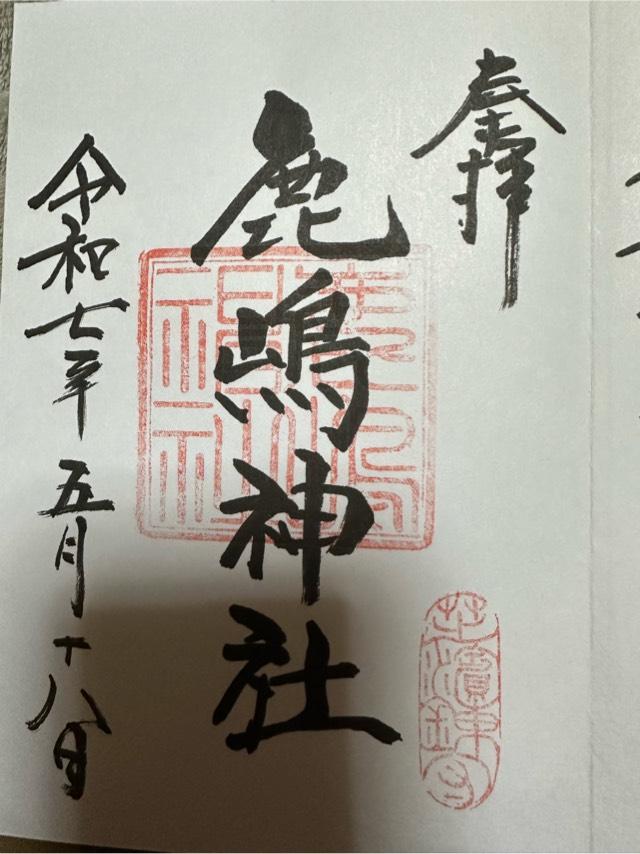 奉拝
鹿嶋神社
令和七年五月十八日